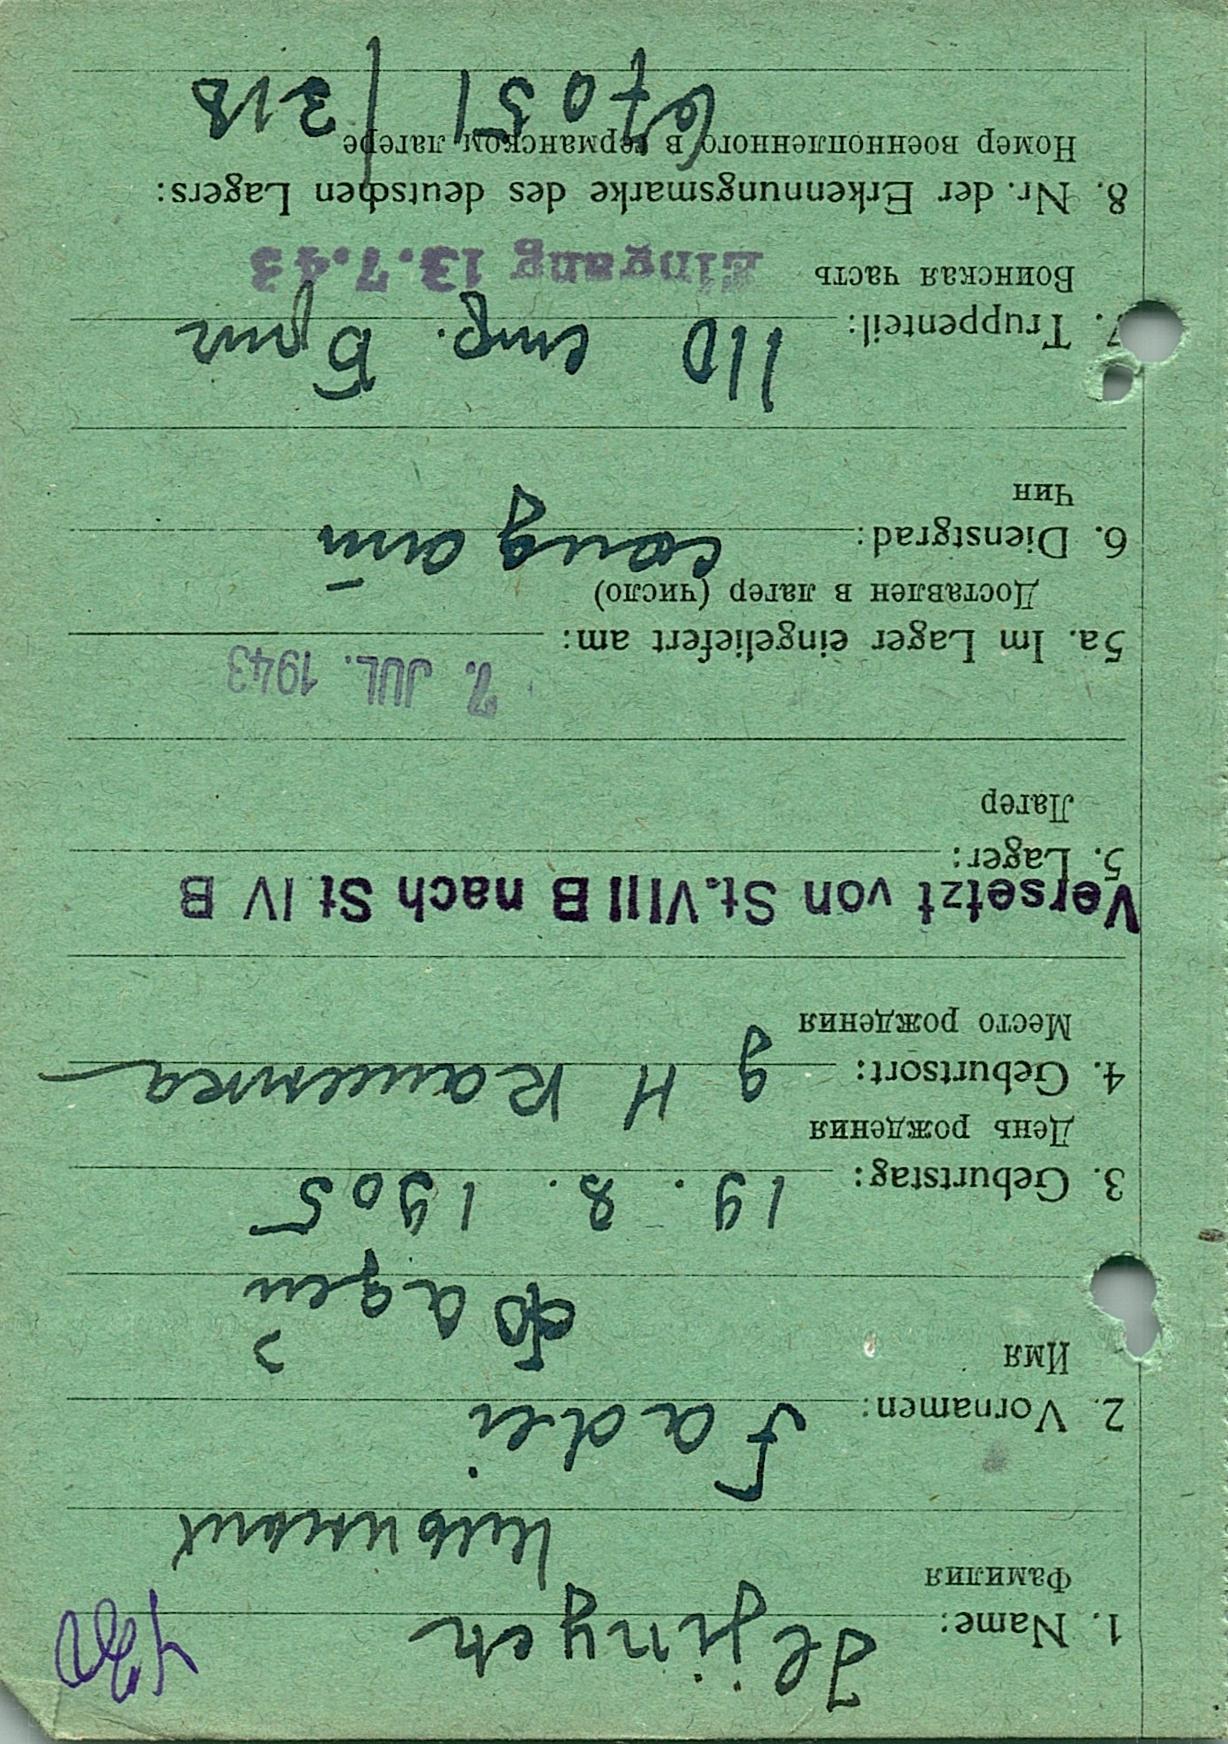 1. Name: Iljinych
Фамилия
Ильиных
2. Vornamen: Fadei
Имя
Фадей
3. Geburtstag: 19. 8. 1905
День рождения
4. Geburtsort: д Н Каменка
Место рождения
Versetzt von St. VIII B nach St IV B
5. Lager:
Лагер
7. JUL. 1943
5a. Im Lager eingeliefert am:
Доставлен в лагер (число)
6. Dienstgrad: солдат
Чин
7. Truppenteil: 110 стр. Бриг
Воинская часть Eingang 13.7.43
8. Nr. der Erkennungsmarke des deutschen Lagers:
Номер военнопленного в германском лагере
67051 / 318